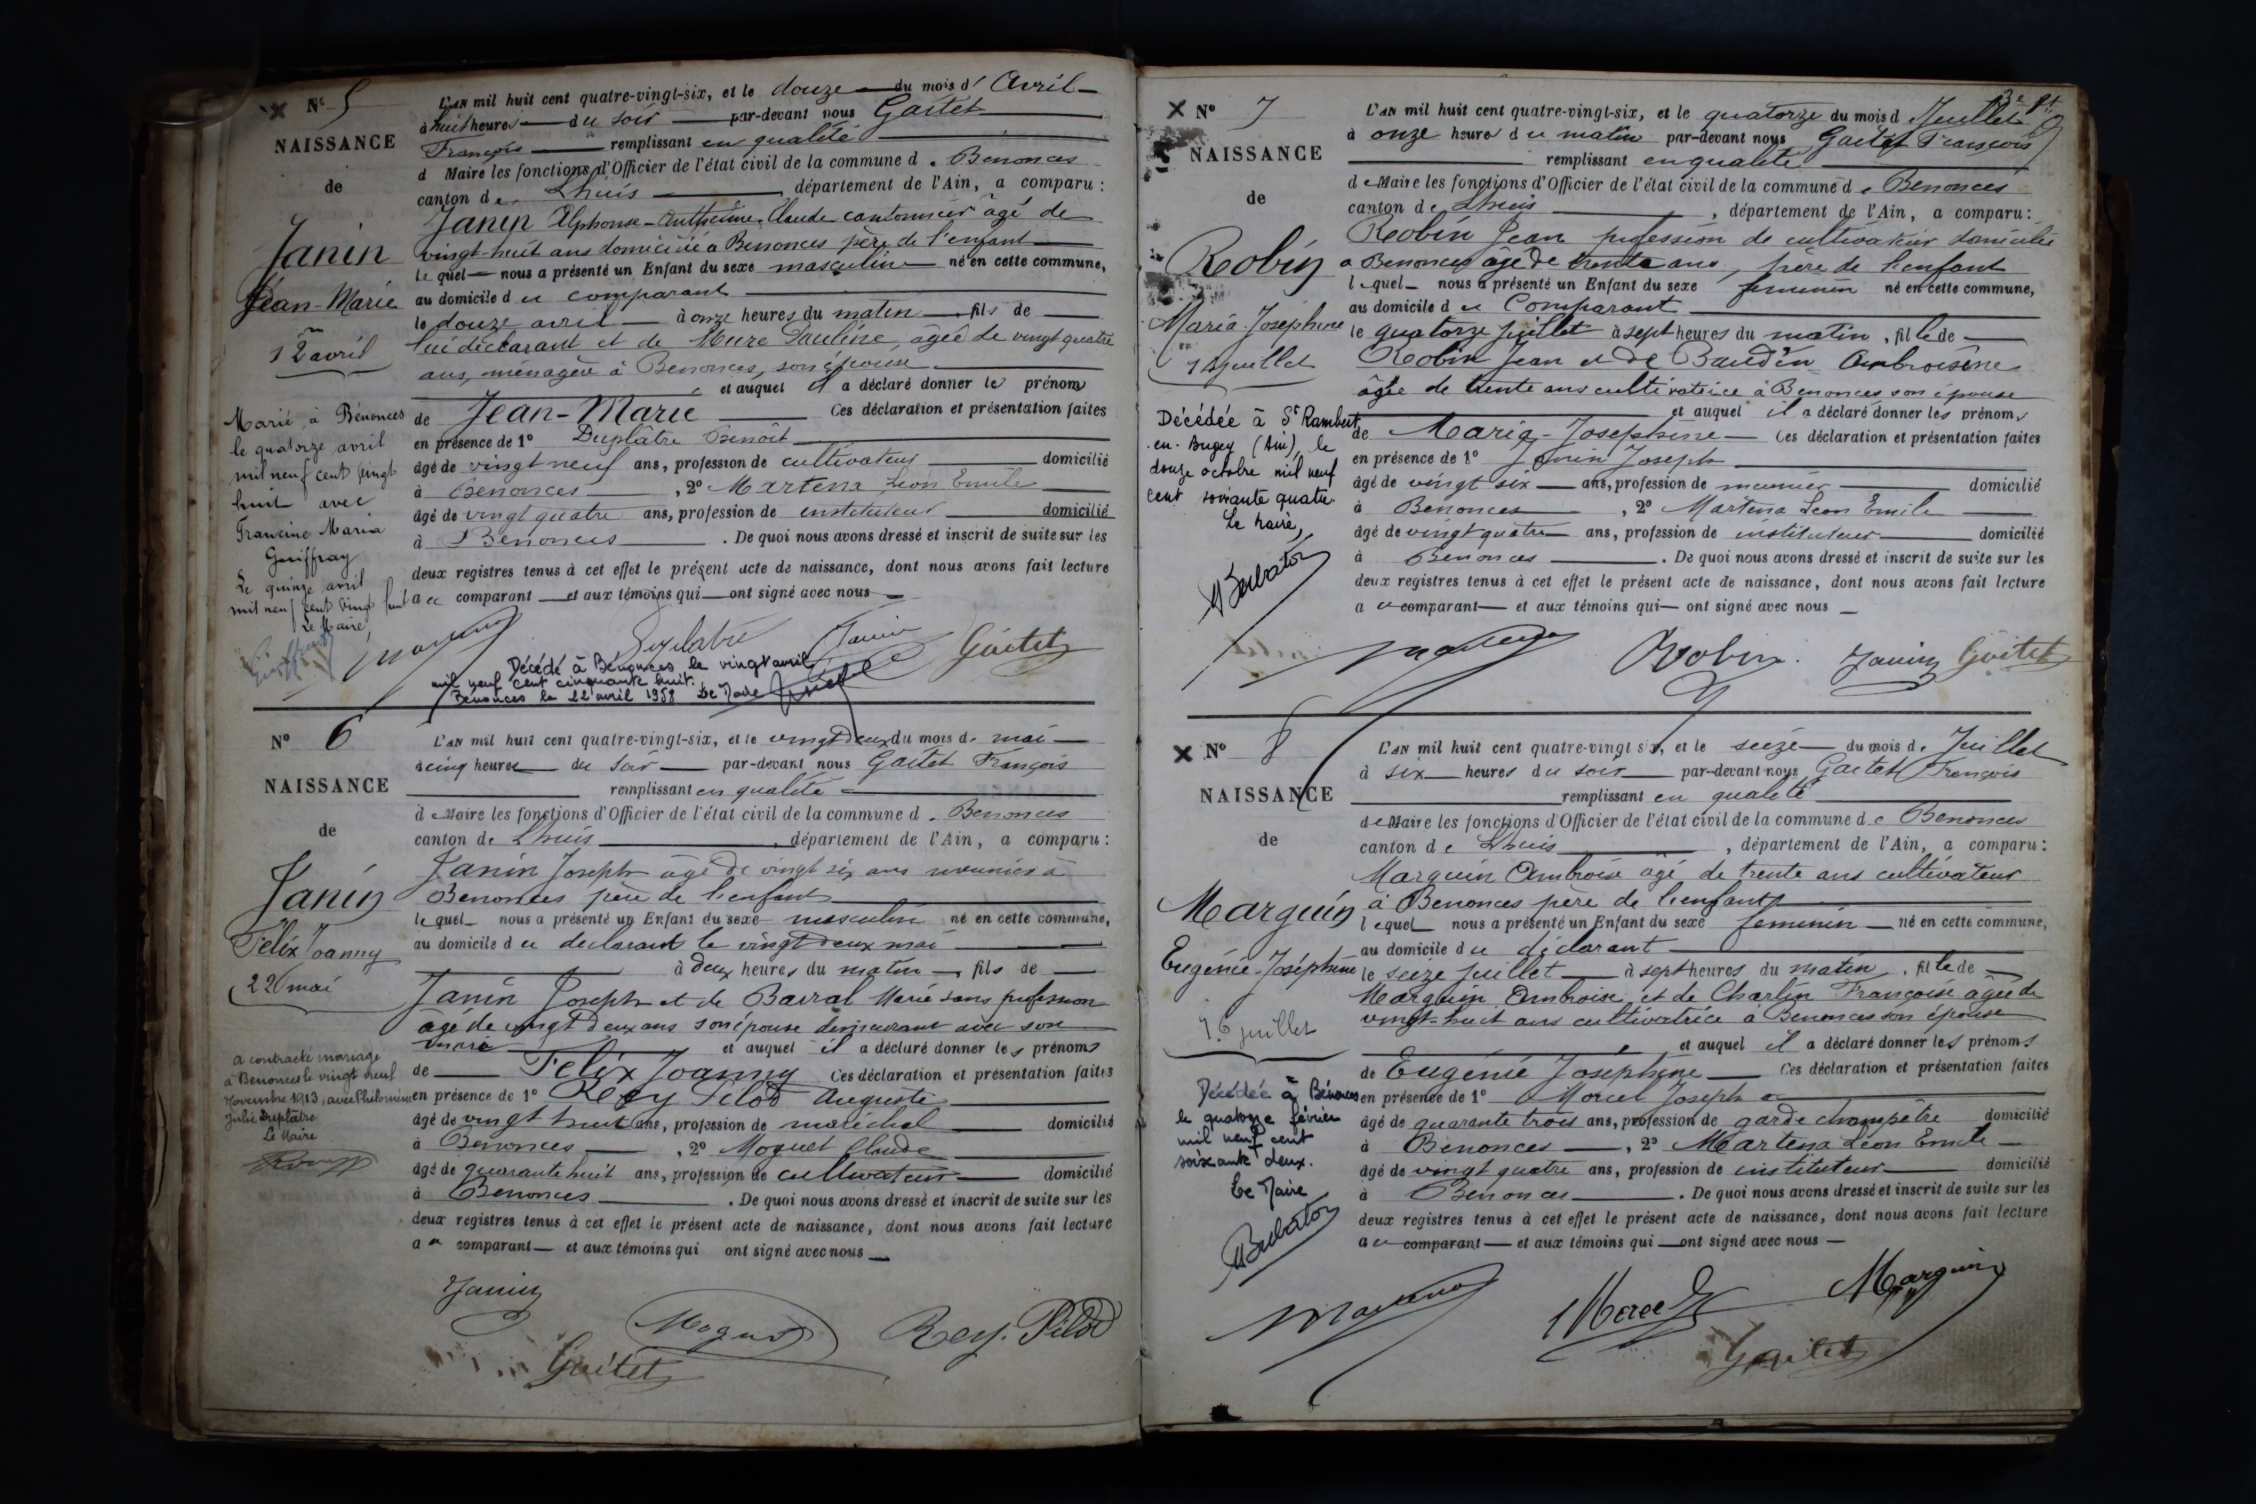 N° 5
NAISSANCE
de
Janin
Jean-Marie
12 avril
Marié à Bénonces
le quatorze avril
mil neuf cent vingt
huit avec
Francine Maria
Guiffray
Le quinze avril
mil neuf cent vingt huit
Le Maire,
L'AN mil huit cent quatre-vingt-six, et le douze du mois d' Avril
à huit heures du soir par-devant nous Gaitet
François remplissant en qualité
d Maire les fonctions d'Officier de l'état civil de la commune de Benonces
canton de Lhuis, département de l'Ain, a comparu :
Janin Alphonse-Anthelme Claude cantonnier âgé de
vingt-huit ans domicilié à Benonces père de l'enfant
lequel nous a présenté un Enfant du sexe masculin né en cette commune,
au domicile du comparant
le douze avril à onze heures du matin, fils de
lui déclarant et de Mure Pauline, âgée de vingt quatre
ans, ménagère à Benonces, son épouse
et auquel il a déclaré donner le prénom
de Jean-Marie Ces déclaration et présentation faites
en présence de 1° Duplâtre Benoît
âgé de vingt neuf ans, profession de cultivateur domicilié
à Benonces, 2° Martena Léon Emile
âgé de vingt quatre ans, profession de instituteur domicilié
à Benonces. De quoi nous avons dressé et inscrit de suite sur les
deux registres tenus à cet effet le présent acte de naissance, dont nous avons fait lecture
au comparant et aux témoins qui ont signé avec nous
Duplatre Janin Gaitet
Décédé à Bénonces le vingt avril
mil neuf cent cinquante huit.
Bénonces le 22 avril 1958 Le Maire
N° 6
NAISSANCE
de
Janin
Félix Joanny
22 mai
a contracté mariage
à Benonces le vingt neuf
Novembre 1913, avec Philomène
Julie Duplâtre
Le Maire
L'AN mil huit cent quatre-vingt-six, et le vingt deux du mois de mai
à cinq heures du soir par-devant nous Gaitet François
remplissant en qualité
de Maire les fonctions d'Officier de l'état civil de la commune de Benonces
canton de Lhuis, département de l'Ain, a comparu :
Janin Joseph âgé de vingt six ans meunier à
Benonces père de l'enfant
lequel nous a présenté un Enfant du sexe masculin né en cette commune,
au domicile du déclarant le vingt deux mai
à deux heures du matin, fils de
Janin Joseph et de Barral Marie sans profession
âgé de vingt deux ans son épouse demeurant avec son
mari et auquel il a déclaré donner les prénoms
de Félix Joanny Ces déclaration et présentation faites
en présence de 1° Rey Pilod Auguste
âgé de vingt huit ans, profession de maréchal domicilié
à Benonces, 2° Moguet Claude
âgé de quarante huit ans, profession de cultivateur domicilié
à Benonces. De quoi nous avons dressé et inscrit de suite sur les
deux registres tenus à cet effet le présent acte de naissance, dont nous avons fait lecture
au comparant et aux témoins qui ont signé avec nous
Janin
Moguet Rey. Pilod
Gaitet
N° 7
NAISSANCE
de
Robin
Maria-Joséphine
14 juillet
Décédée à St Rambert
en-Bugey (Ain), le
douze octobre mil neuf
cent soixante quatre
Le Maire,
3e
L'AN mil huit cent quatre-vingt-six, et le quatorze du mois d Juillet
à onze heures du matin par-devant nous Gaitet François
remplissant en qualité
de Maire les fonctions d'Officier de l'état civil de la commune de Benonces
canton de Lhuis, département de l'Ain, a comparu :
Robin Jean profession de cultivateur domicilié
à Benonces âgé de trente ans, père de l'enfant
lequel nous a présenté un Enfant du sexe feminin né en cette commune,
au domicile du Comparant
le quatorze juillet à sept heures du matin, fille de
Robin Jean et de Baudin Ambroisine
âgée de trente ans cultivatrice à Benonces son épouse
et auquel il a déclaré donner les prénoms
de Maria-Joséphine Ces déclaration et présentation faites
en présence de 1° Janin Joseph
âgé de vingt six ans, profession de meunier domicilié
à Benonces, 2° Martena Leon Emile
âgé de vingt quatre ans, profession de instituteur domicilié
à Benonces. De quoi nous avons dressé et inscrit de suite sur les
deux registres tenus à cet effet le présent acte de naissance, dont nous avons fait lecture
au comparant et aux témoins qui ont signé avec nous
Robin. Janin Gaitet
N° 8
NAISSANCE
de
Marguin
Eugénie-Joséphine
16 juillet
Décédée à Bénonces
le quatorze février
mil neuf cent
soixante deux.
Le Maire
L'AN mil huit cent quatre-vingt six, et le seize du mois de Juillet
à six heures du soir par-devant nous Gaitet François
remplissant en qualité
de Maire les fonctions d'Officier de l'état civil de la commune de Benonces
canton de Lhuis, département de l'Ain, a comparu :
Marguin Ambroise âgé de trente ans cultivateur
à Benonces père de l'enfant
lequel nous a présenté un Enfant du sexe feminin né en cette commune,
au domicile du déclarant
le seize juillet à sept heures du matin, fille de
Marguin Ambroise et de Charlin Françoise âgée de
vingt-huit ans cultivatrice à Benonces son épouse
et auquel il a déclaré donner les prénoms
de Eugénie Joséphine Ces déclaration et présentation faites
en présence de 1° Morcel Joseph
âgé de quarante trois ans, profession de garde champêtre domicilié
à Benonces, 2° Martena Léon Emile
âgé de vingt quatre ans, profession de instituteur domicilié
à Benonces. De quoi nous avons dressé et inscrit de suite sur les
deux registres tenus à cet effet le présent acte de naissance, dont nous avons fait lecture
au comparant et aux témoins qui ont signé avec nous
Marguin
Gaitet